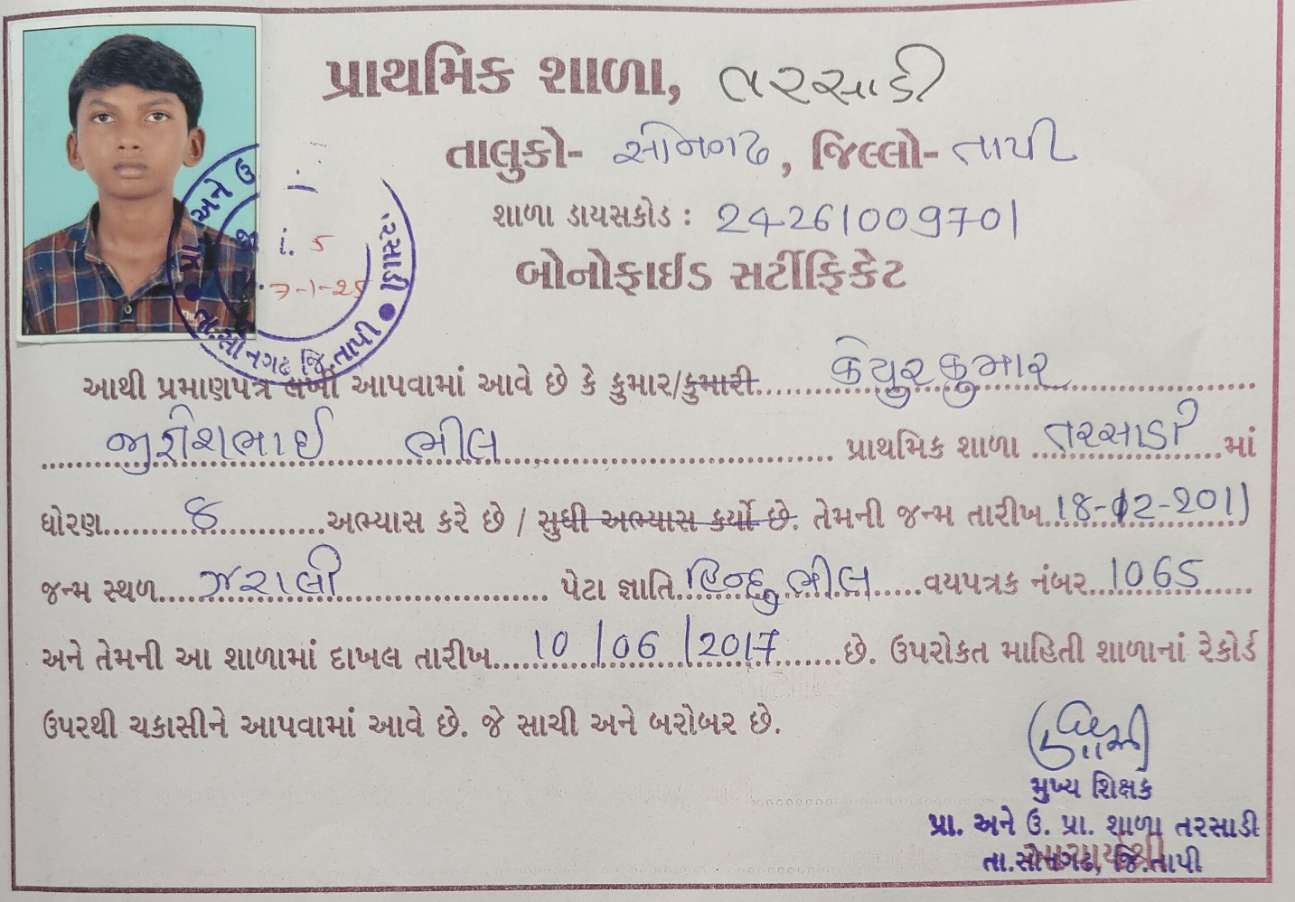 પ્રાથમિક શાળા, તરસાડી
તાલુકો- સોનગઢ, જિલ્લો- તાપી
શાળા ડાયસકોડ : 24261009701
બોનોફાઈડ સર્ટીફિકેટ
આથી પ્રમાણપત્ર લખી આપવામાં આવે છે કે કુમાર/કુમારી કેયુરકુમાર
ભાઈ ભીલ પ્રાથમિક શાળા તરસાડી માં
ધોરણ 8 અભ્યાસ કરે છે / સુધી અભ્યાસ કર્યો છે. તેમની જન્મ તારીખ 18-12-2011
જન્મ સ્થળ ઝરાલી પેટા જ્ઞાતિ હિન્દુ ભીલ વયપત્રક નંબર 1065
અને તેમની આ શાળામાં દાખલ તારીખ 10/06/2017 છે. ઉપરોક્ત માહિતી શાળાનાં રેકોર્ડ
ઉપરથી ચકાસીને આપવામાં આવે છે. જે સાચી અને બરોબર છે.
મુખ્ય શિક્ષક
પ્રા. અને ઉ. પ્રા. શાળા તરસાડી
તા.સોનગઢ, જિ.તાપી
પ્રા. અને ઉ તરસાડી
તા.સોનગઢ જિ.તાપી
i. 5
7-1-25